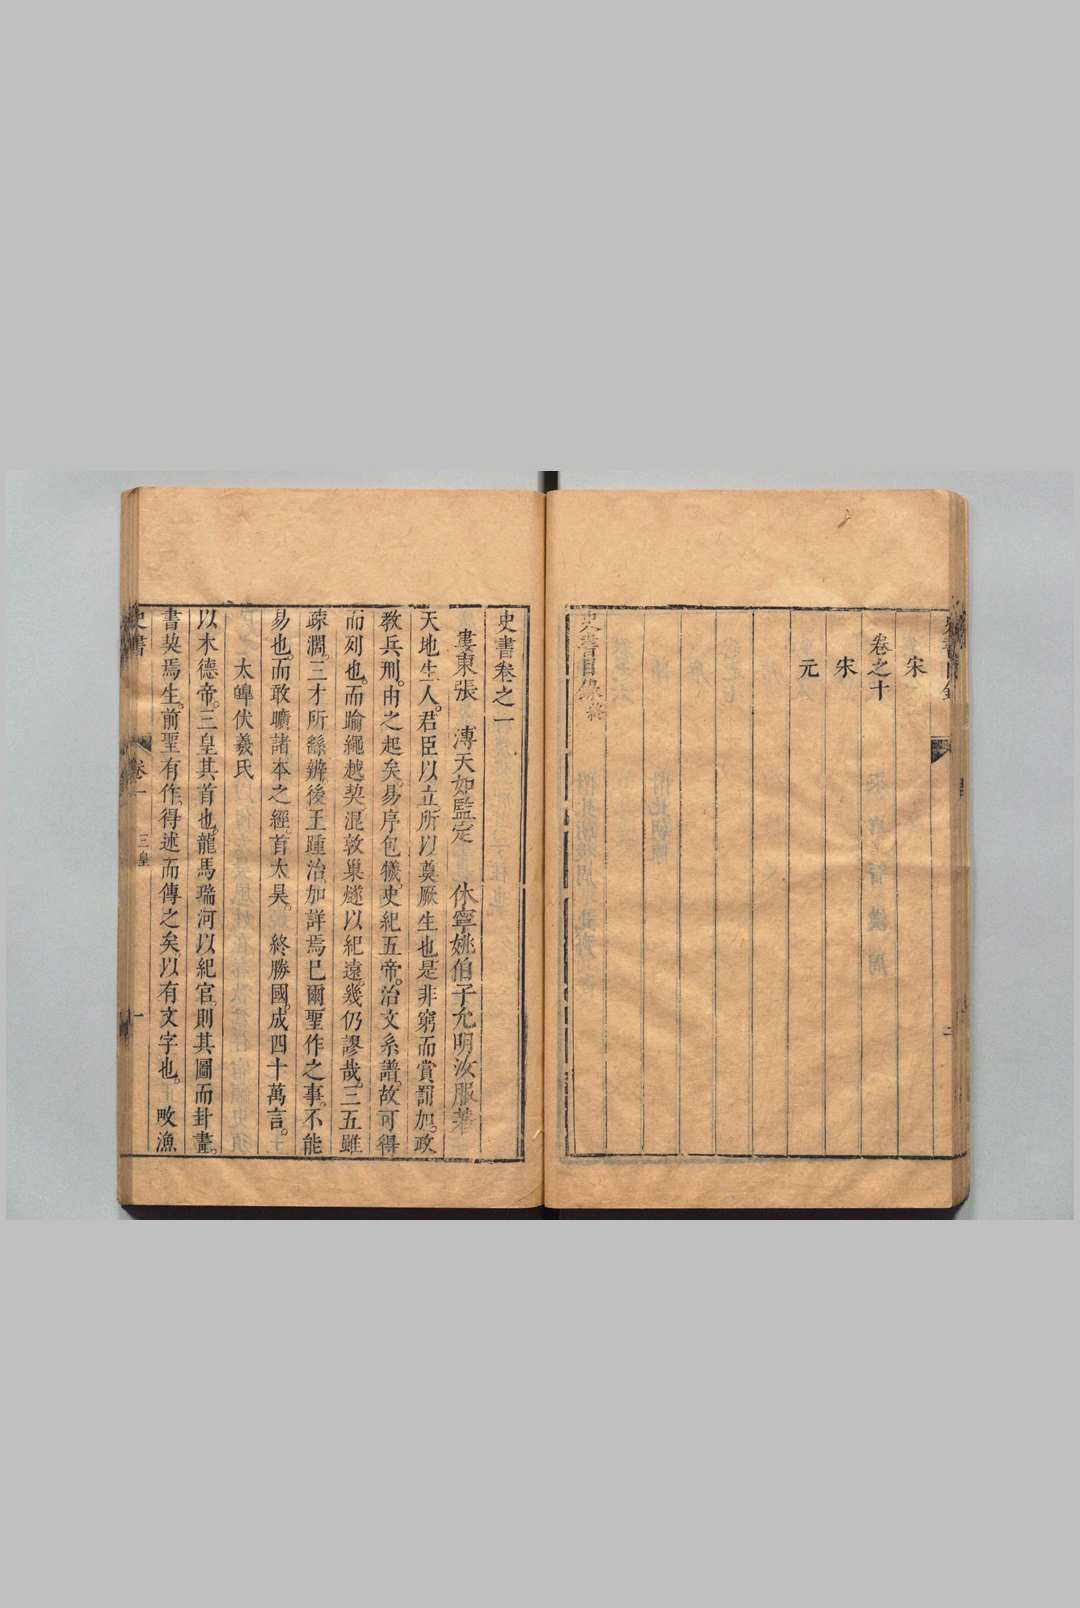 史書目錄
宋
卷之十
宋
元
史書目錄終
史書卷之一
婁東張溥天如監定 休寧姚伯子允明汝服著
天地生人。君臣以立。所以奠厥生也是非窮而賞罰加。政
教兵刑。由之起矣。易序包犧。史紀五帝。治文系譜。故可得
而列也。而踰繩越契。混敦巢燧以紀遠。幾仍謬哉。三五雖
疎濶。三才所繇辨。後王踵治。加詳焉已爾。聖作之事。不能
易也。而敢曠諸本之經。首太昊。終勝國。成四十萬言。
太皥伏羲氏
以木德帝。三皇其首也。龍馬瑞河。以紀官。則其圖而封畫。
書契焉生。前聖有作。得述而傳之矣。以有文字也。畋漁
史書 卷一 三皇 一